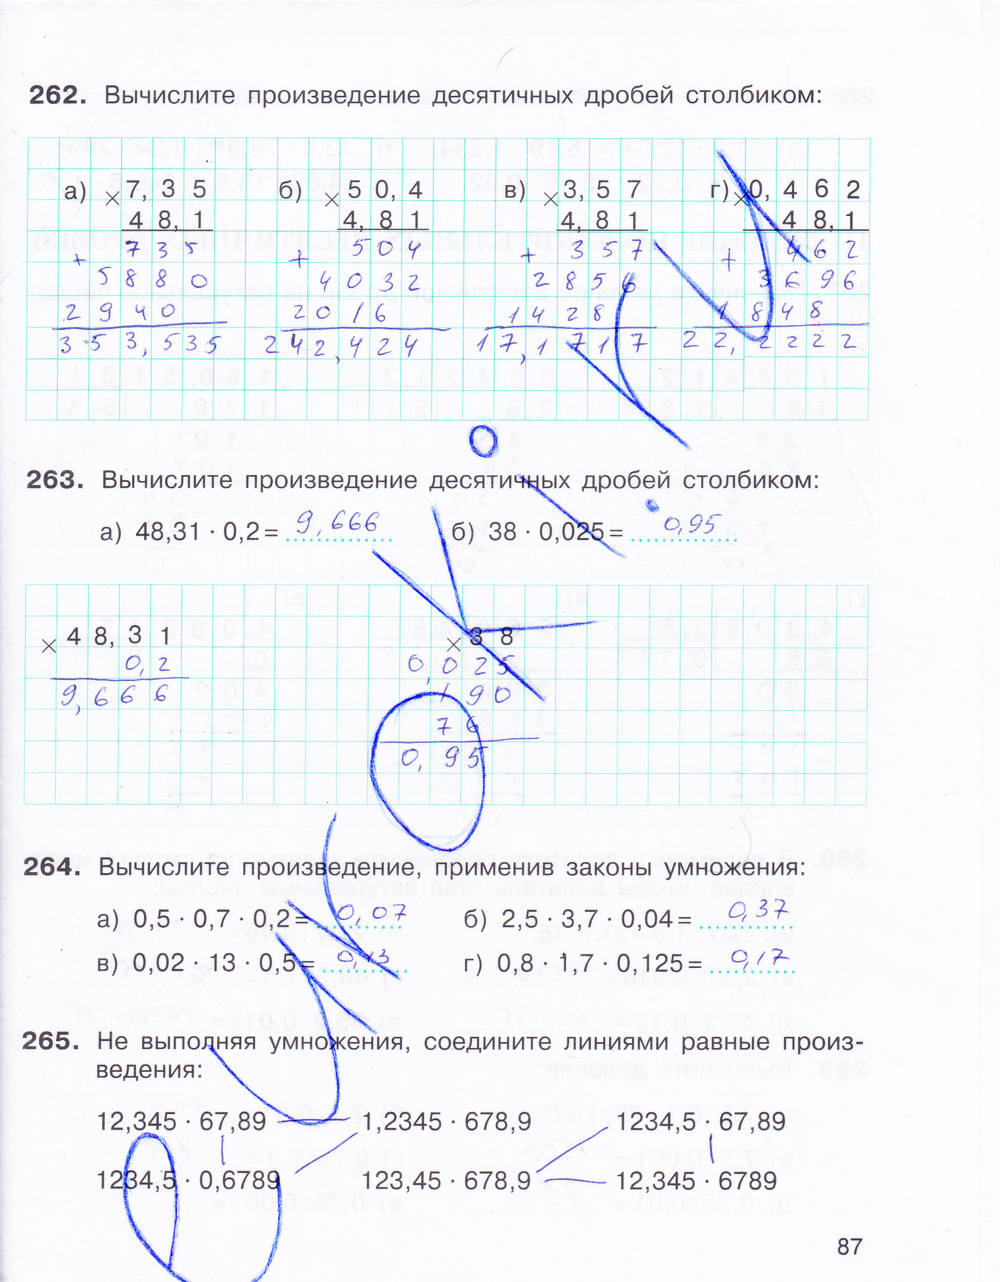 262. Вычислите произведение десятичных дробей столбиком:
а) × 7,35 б) × 50,4 в) × 3,57 г) × 0,462
48,1 4,81 4,81 48,1
+ 735 + 504 + 357 + 462
5880 4032 2856 3696
2940 2016 1428 1848
353,535 242,424 17,1717 22,2222
263. Вычислите произведение десятичных дробей столбиком:
а) 48,31 · 0,2 = 9,666 б) 38 · 0,025 = 0,95
× 48,31 × 38
0,2 0,025
9,666 190
76
0,95
264. Вычислите произведение, применив законы умножения:
а) 0,5 · 0,7 · 0,2 = 0,07 б) 2,5 · 3,7 · 0,04 = 0,37
в) 0,02 · 13 · 0,5 = 0,13 г) 0,8 · 1,7 · 0,125 = 0,17
265. Не выполняя умножения, соедините линиями равные произ-
ведения:
12,345 · 67,89 1,2345 · 678,9 1234,5 · 67,89
1234,5 · 0,6789 123,45 · 678,9 12,345 · 6789
87